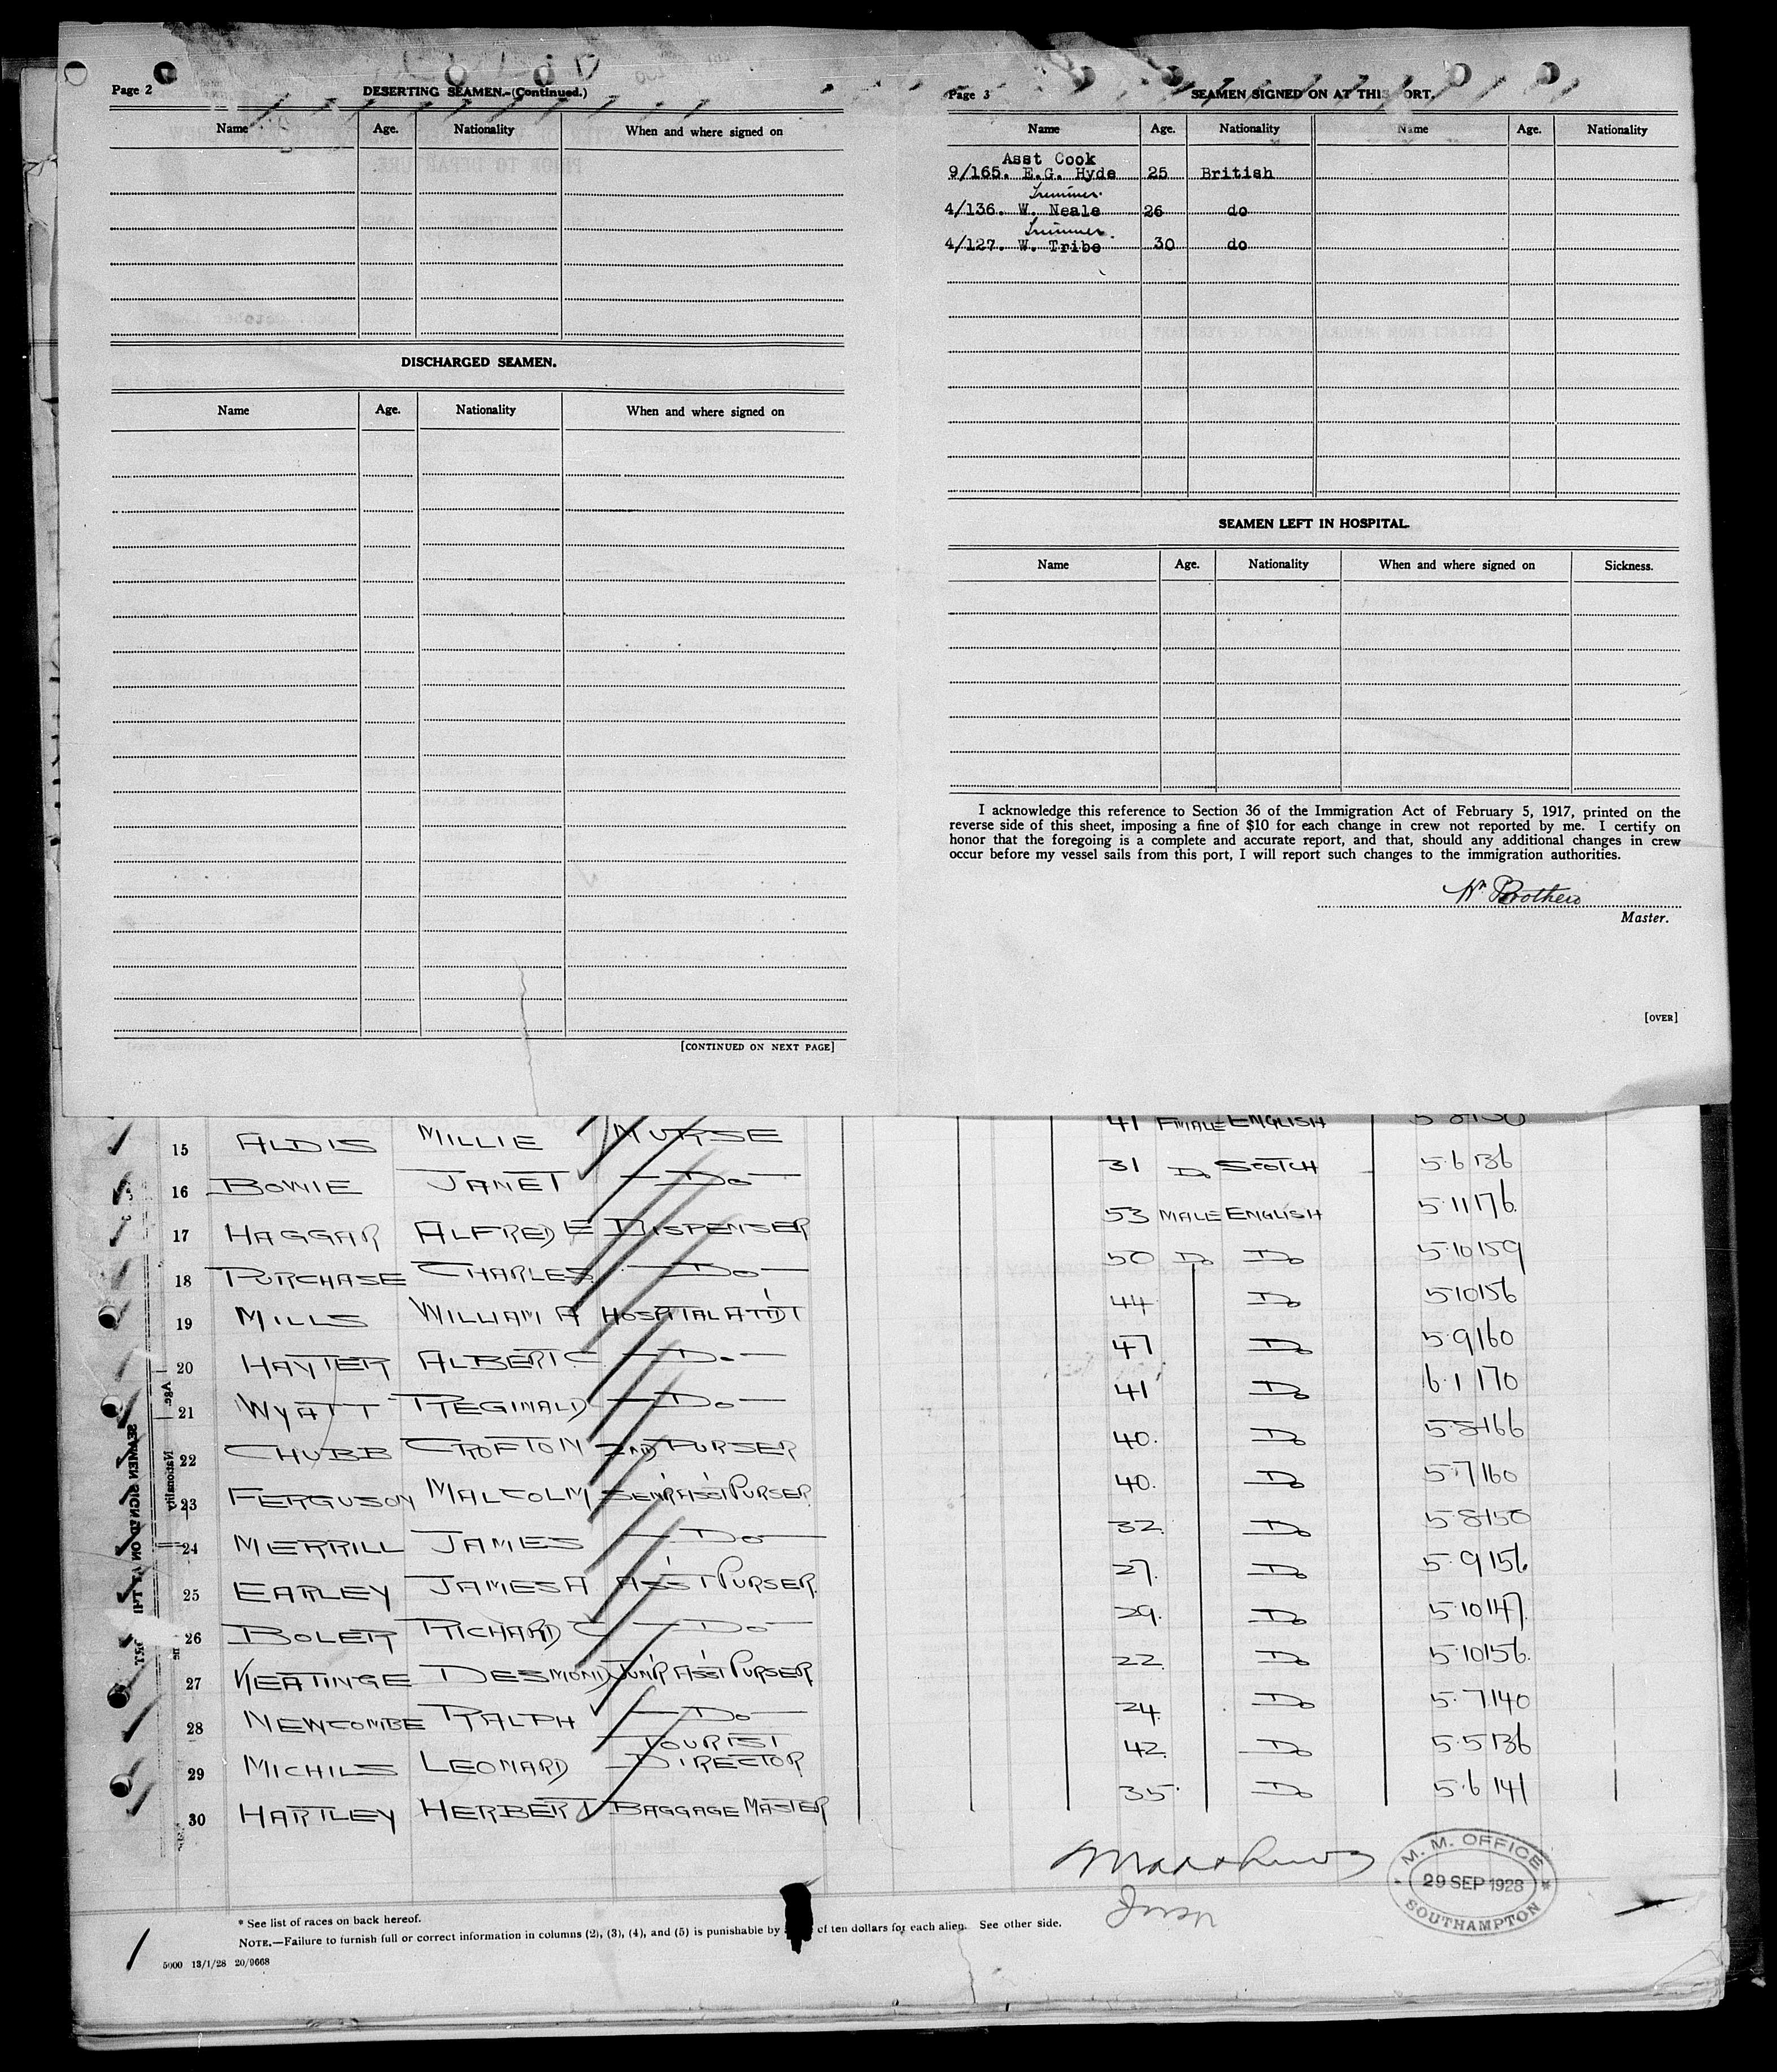 Page 2
DESERTING SEAMEN.-(Continued.)
Name Age. Nationality When and where signed on
DISCHARGED SEAMEN.
Name Age. Nationality When and where signed on
[CONTINUED ON NEXT PAGE]
Page 3
SEAMEN SIGNED ON AT THIS PORT.
Name Age. Nationality Name Age. Nationality
Asst Cook
9/165. E.G. Hyde 25 British
Trimmer.
4/136. W. Neale 26 do
Trimmer.
4/127. W. Tribe 30 do
SEAMEN LEFT IN HOSPITAL.
Name Age. Nationality When and where signed on Sickness.
I acknowledge this reference to Section 36 of the Immigration Act of February 5, 1917, printed on the
reverse side of this sheet, imposing a fine of $10 for each change in crew not reported by me. I certify on
honor that the foregoing is a complete and accurate report, and that, should any additional changes in crew
occur before my vessel sails from this port, I will report such changes to the immigration authorities.
Wm Prothero
Master.
[OVER]
15 ALDIS MILLIE NURSE 41 FMALE ENGLISH 5 8 130
16 BOWIE JANET — Do — 31 Do SCOTCH 5.6 136
17 HAGGAR ALFRED E DISPENSER 53 MALE ENGLISH 5.11 176.
18 PURCHASE CHARLES — Do — 50 Do Do 5.10 159
19 MILLS WILLIAM A HOSPITAL ATT'DT 44 Do 5.10 156
20 HAYTER ALBERT C — Do — 47 Do 5.9 160
21 WYATT REGINALD — Do — 41 Do 6.1 170
22 CHUBB CROFTON 2ND PURSER 40. Do 5.8 166
23 FERGUSON MALCOLM SEN'R ASS'T PURSER. 40. Do 5.7 160
24 MERRILL JAMES — Do — 32. Do 5.8 150
25 EARLEY JAMES A ASS'T PURSER. 27. Do 5.9 156.
26 BOLER RICHARD C — Do — 29. Do 5.10 147.
27 KEATINGE DESMOND JUN'R ASS'T PURSER 22. Do 5.10 156.
28 NEWCOMBE RALPH — Do — 24. Do 5.7 140
TOURIST
29 MICHILS LEONARD DIRECTOR 42. Do 5.5 136
30 HARTLEY HERBERT BAGGAGE MASTER 35. Do 5.6 141
M. M. OFFICE
29 SEP 1928
SOUTHAMPTON
* See list of races on back hereof.
NOTE.—Failure to furnish full or correct information in columns (2), (3), (4), and (5) is punishable by of ten dollars for each alien. See other side.
5000 13/1/28 20/9668